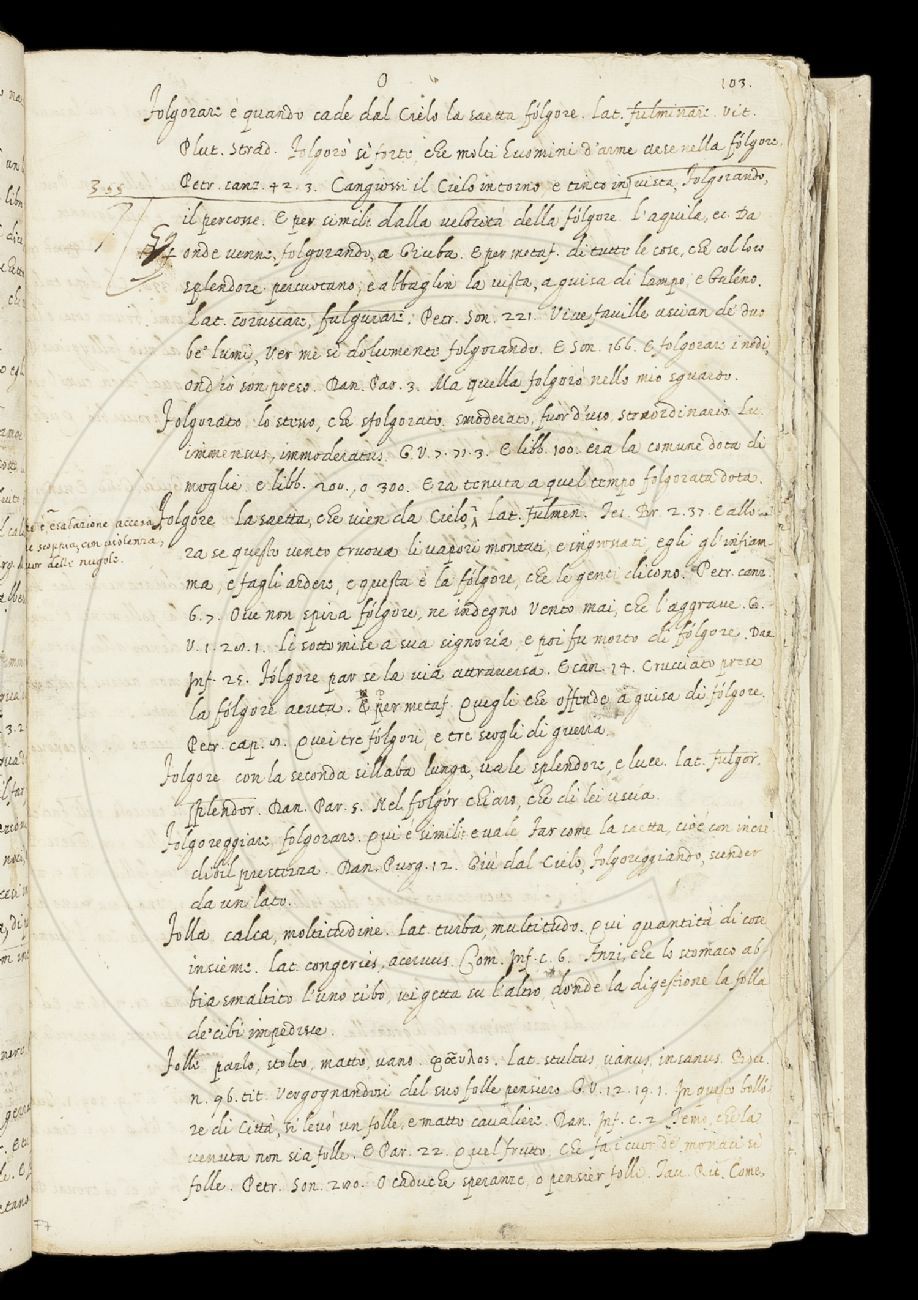 O
103.
Folgorare è quando cade dal Cielo la saetta fólgore. Lat. fulminare. Vit.
Plut. Strad. Folgorò sì forte, che molti huomini d'arme arse nella fólgore.
Petr. canz. 42. 3. Cangiossi il Cielo intorno e tinto in vista, Folgorando,
il percosse. E per simil: dalla velocità della fólgore. l'aquila, ec. Da
onde venne, folgorando, a Giuba. E per metaf. di tutte le cose, che col loro
splendore percuotano, e abbaglin la vista, a guisa di lampo, e baléno.
Lat. coruscare, fulgurare. Petr. Son. 221. Vive faville uscian de' duo
be' lumi, Ver me sì dolcemente folgorando. E Son. 166. E folgorare i nodi,
ond' io son preso. Dan. Par. 3. Ma quella folgorò nello mio sguardo.
Folgorato, lo stesso, che sfolgorato. smoderato, fuor d'uso, straordinario. La.
immensus, immoderatus. G. V. 7. 71. 3. E libb. 100. era la comune dota di
moglie, e libb. 200., o 300. Era tenuta a quel tempo folgorata dota.
Fólgore la saetta, che vien da Cielo, Lat. fulmen. Tes. Br. 2. 37. E allo-
ra se questo vento truova li vapori montati, e ingrossati, egli gl'infiam-
ma, e fagli ardere, e questa è la fólgore, che le genti dicono. Petr. canz.
6. 7. Ove non spira fólgore, ne indegno Vento mai, che l'aggrave. G.
V. 1. 20. 1. Li sottomise a sua signoria, e poi fu morto di fólgore. Dan.
Inf. 25. Fólgore par se la via attraversa. E can. 14. Crucciato prese
la fólgore acuta. E per metaf. Quegli che offende a guisa di fólgore.
Petr. cap. Quei tre fólgori, e tre scogli di guerra.
Folgore con la seconda sillaba lunga, vale splendore, e luce. Lat. fulgor.
splendor. Dan. Par. 5. Nel folgór chiaro, che di lei uscia.
Folgoreggiare, folgorare. Qui è simil: e vale Far come la saetta, cioè con incre-
dibil prestezza. Dan. Purg. 12. Giù dal Cielo, Folgoreggiando, scender
da un lato.
Folla calca, moltitudine. Lat. turba, multitudo. Qui quantità di cose
insieme. Lat. congeries, acervus. Com. Inf. c. 6. Anzi, che lo stomaco ab-
bia smaltito l'uno cibo, vi getta su l'altro, donde la digestione la folla
de' cibi impedisce.
Folle pazzo, stolto, matto, vano. φαῦλος. Lat. stultus, vanus, insanus. Bocc.
n. 96. tit. Vergognandosi del suo folle pensiero. G. V. 12. 19. 1. In questo bollo-
re di Città, si levò un folle, e matto cavaliere. Dan. Inf. c. 2. Temo, che la
venuta non sia folle. E Par. 22. Quel frutto, che fa i cuor de' monaci sì
folle. Petr. Son. O caduche speranze, o pensier folli. Tav. Rit. Come,
3.55
è esalazione accesa,
scoppia, con violenza,
fuor delle nugole.